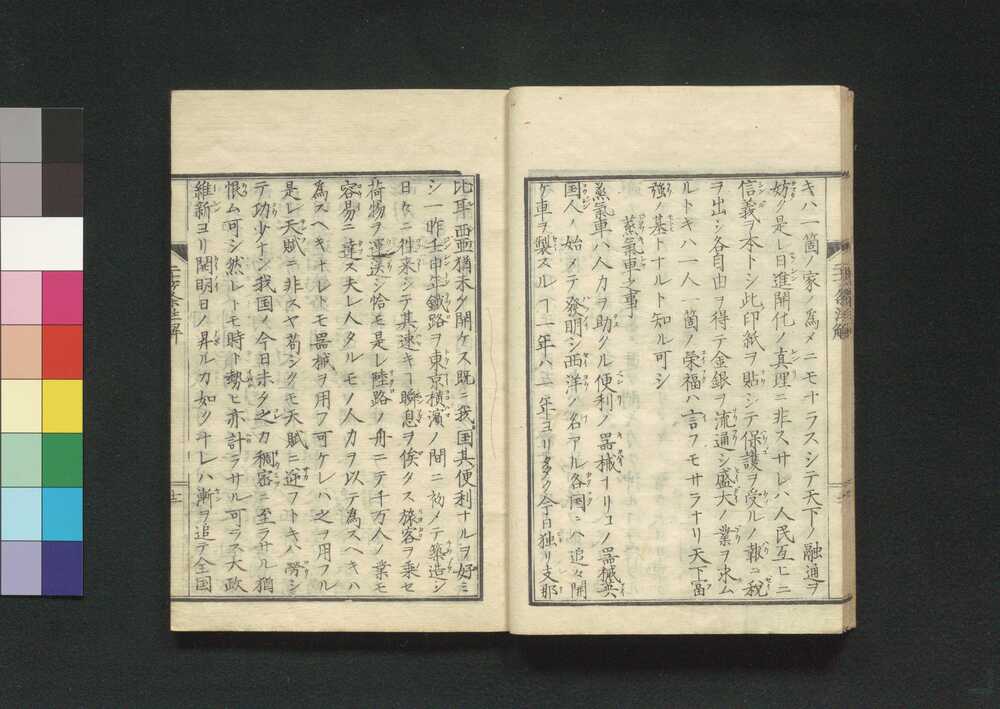 キハ一箇ノ家ノ為メニモナラスシテ天下ノ融通ヲ
妨ク是レ日進開化ノ真理ニ非スサレハ人民互ヒニ
信義ヲ本トシ此印紙ヲ貼シテ保護ヲ受ルノ報ニ税
ヲ出シ各自由ヲ得テ金銀ヲ流通シ盛大ノ業ヲ求ム
ルトキハ一人一箇ノ榮福ハ言フモサラナリ天下富
強ノ基トナルト知ル可シ
蒸氣車之事
蒸氣車ハ人力ヲ助クル便利ノ器械ナリコノ器械英
国人ノ始メテ發明シ西洋ノ名アル各国ニハ追々開
ケ車ヲ製スルヿ一年ハ一年ヨリ多ク今日独リ支那
比耳西亜猶未タ開ケス既ニ我国其便利ナルヲ好ミ
シ一昨壬申年鐵路ヲ東京横濱ノ間ニ初メテ築造シ
日々ニ往来シテ其速キヿ瞬息ヲ俟タス旅客ヲ乗セ
荷物ヲ運送シ恰モ是レ陸路ノ舟ニテ千万人ノ業モ
容易ニ達ス夫レ人タルモノ人力ヲ以テ為スヘキハ
為スヘキナレトモ器械ヲ用フ可ケレハ之ヲ用フル
是レ天賦ニ非スヤ苟シクモ天賦ニ逆フトキハ勞シ
テ功少ナシ我国ノ今日未タ之カ稠密ニ至ラサル猶
恨ム可シ然レトモ時ト勢ヒ亦計ラサル可ラス大政
維新ヨリ開明日ノ昇ルカ如クナレハ漸ヲ追テ全国